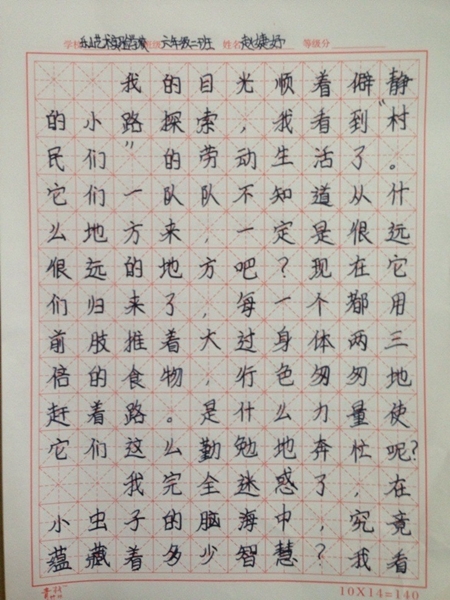 学校乐山艺术实验学校班级六年级二班 姓名赵婕妤 等级分
我的目光顺着僻静
的小路探索,我看到“村
民们”的劳动生活了。
它们一队队不知道从什
么地方来,一定是很远
很远的地方吧?现在它
们归来了,每一个都用
前肢推着大过身体两三
倍的食物,行色匆匆地
赶着路。是什么力量使
它们这么勤勉地奔忙呢?
我完全迷惑了,在
小虫子的脑海中,究竟
蕴藏着多少智慧?我看
10X14=140